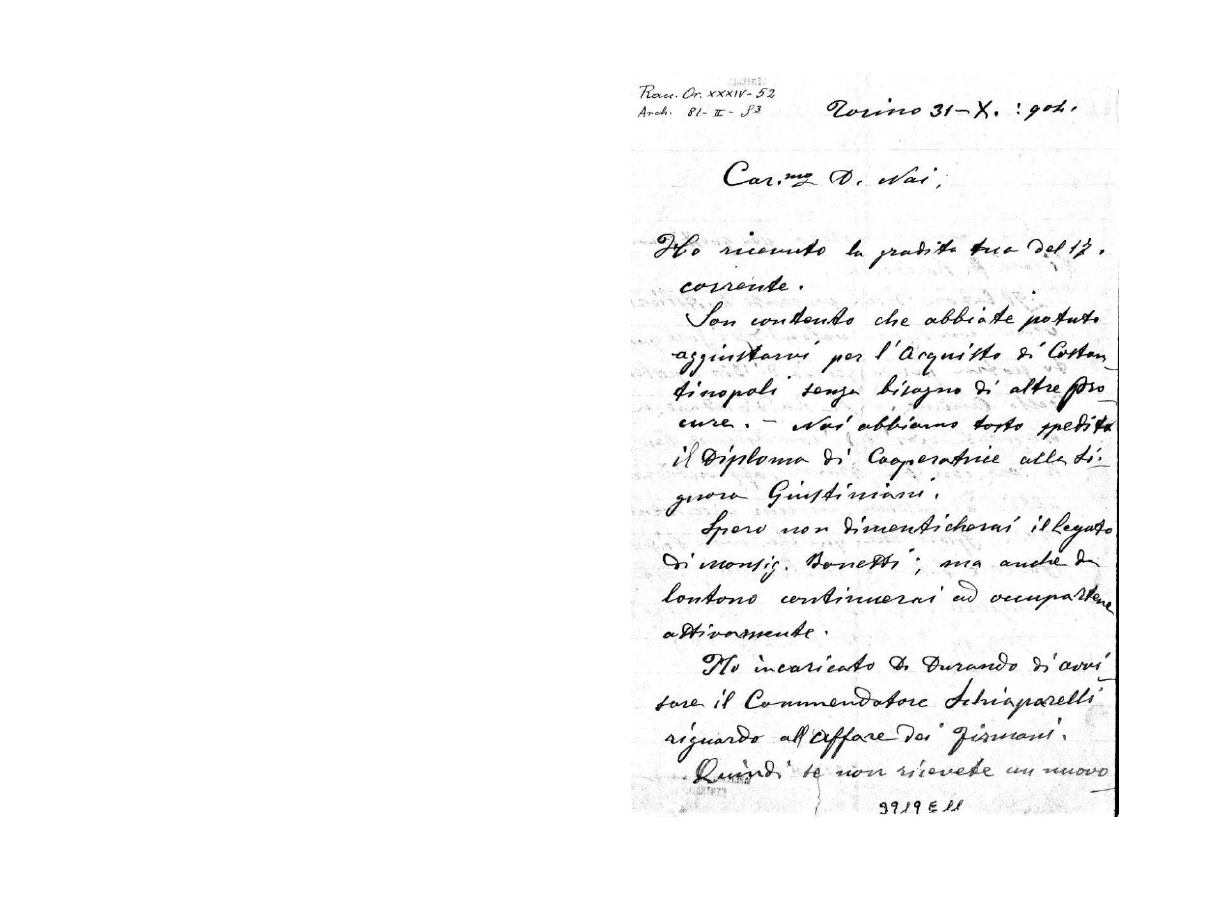 Racc. Or. XXXIV-52
Arch. 81-II-
Torino 31-X. :904.
Car.mo D. Nai,
Ho ricevuto la gradita tua del 17.
corrente.
Son contento che abbiate potuto
aggiustarvi per l'Acquisto di Costan
tinopoli senza bisogno di altre pro_
cure. - Noi abbiamo tosto spedito
il Diploma di Cooperatrice alla Si_
gnora Giustiniani.
Spero non dimenticherai il legato
di monsig. Bonetti; ma anche da
lontano continuerai ad occupartene
attivamente.
Ho incaricato D. Durando di avvi_
sare il Commendatore Schiaparelli
riguardo all'affare dei Firmani.
Quindi se non ricevete un nuovo
3919 E 11